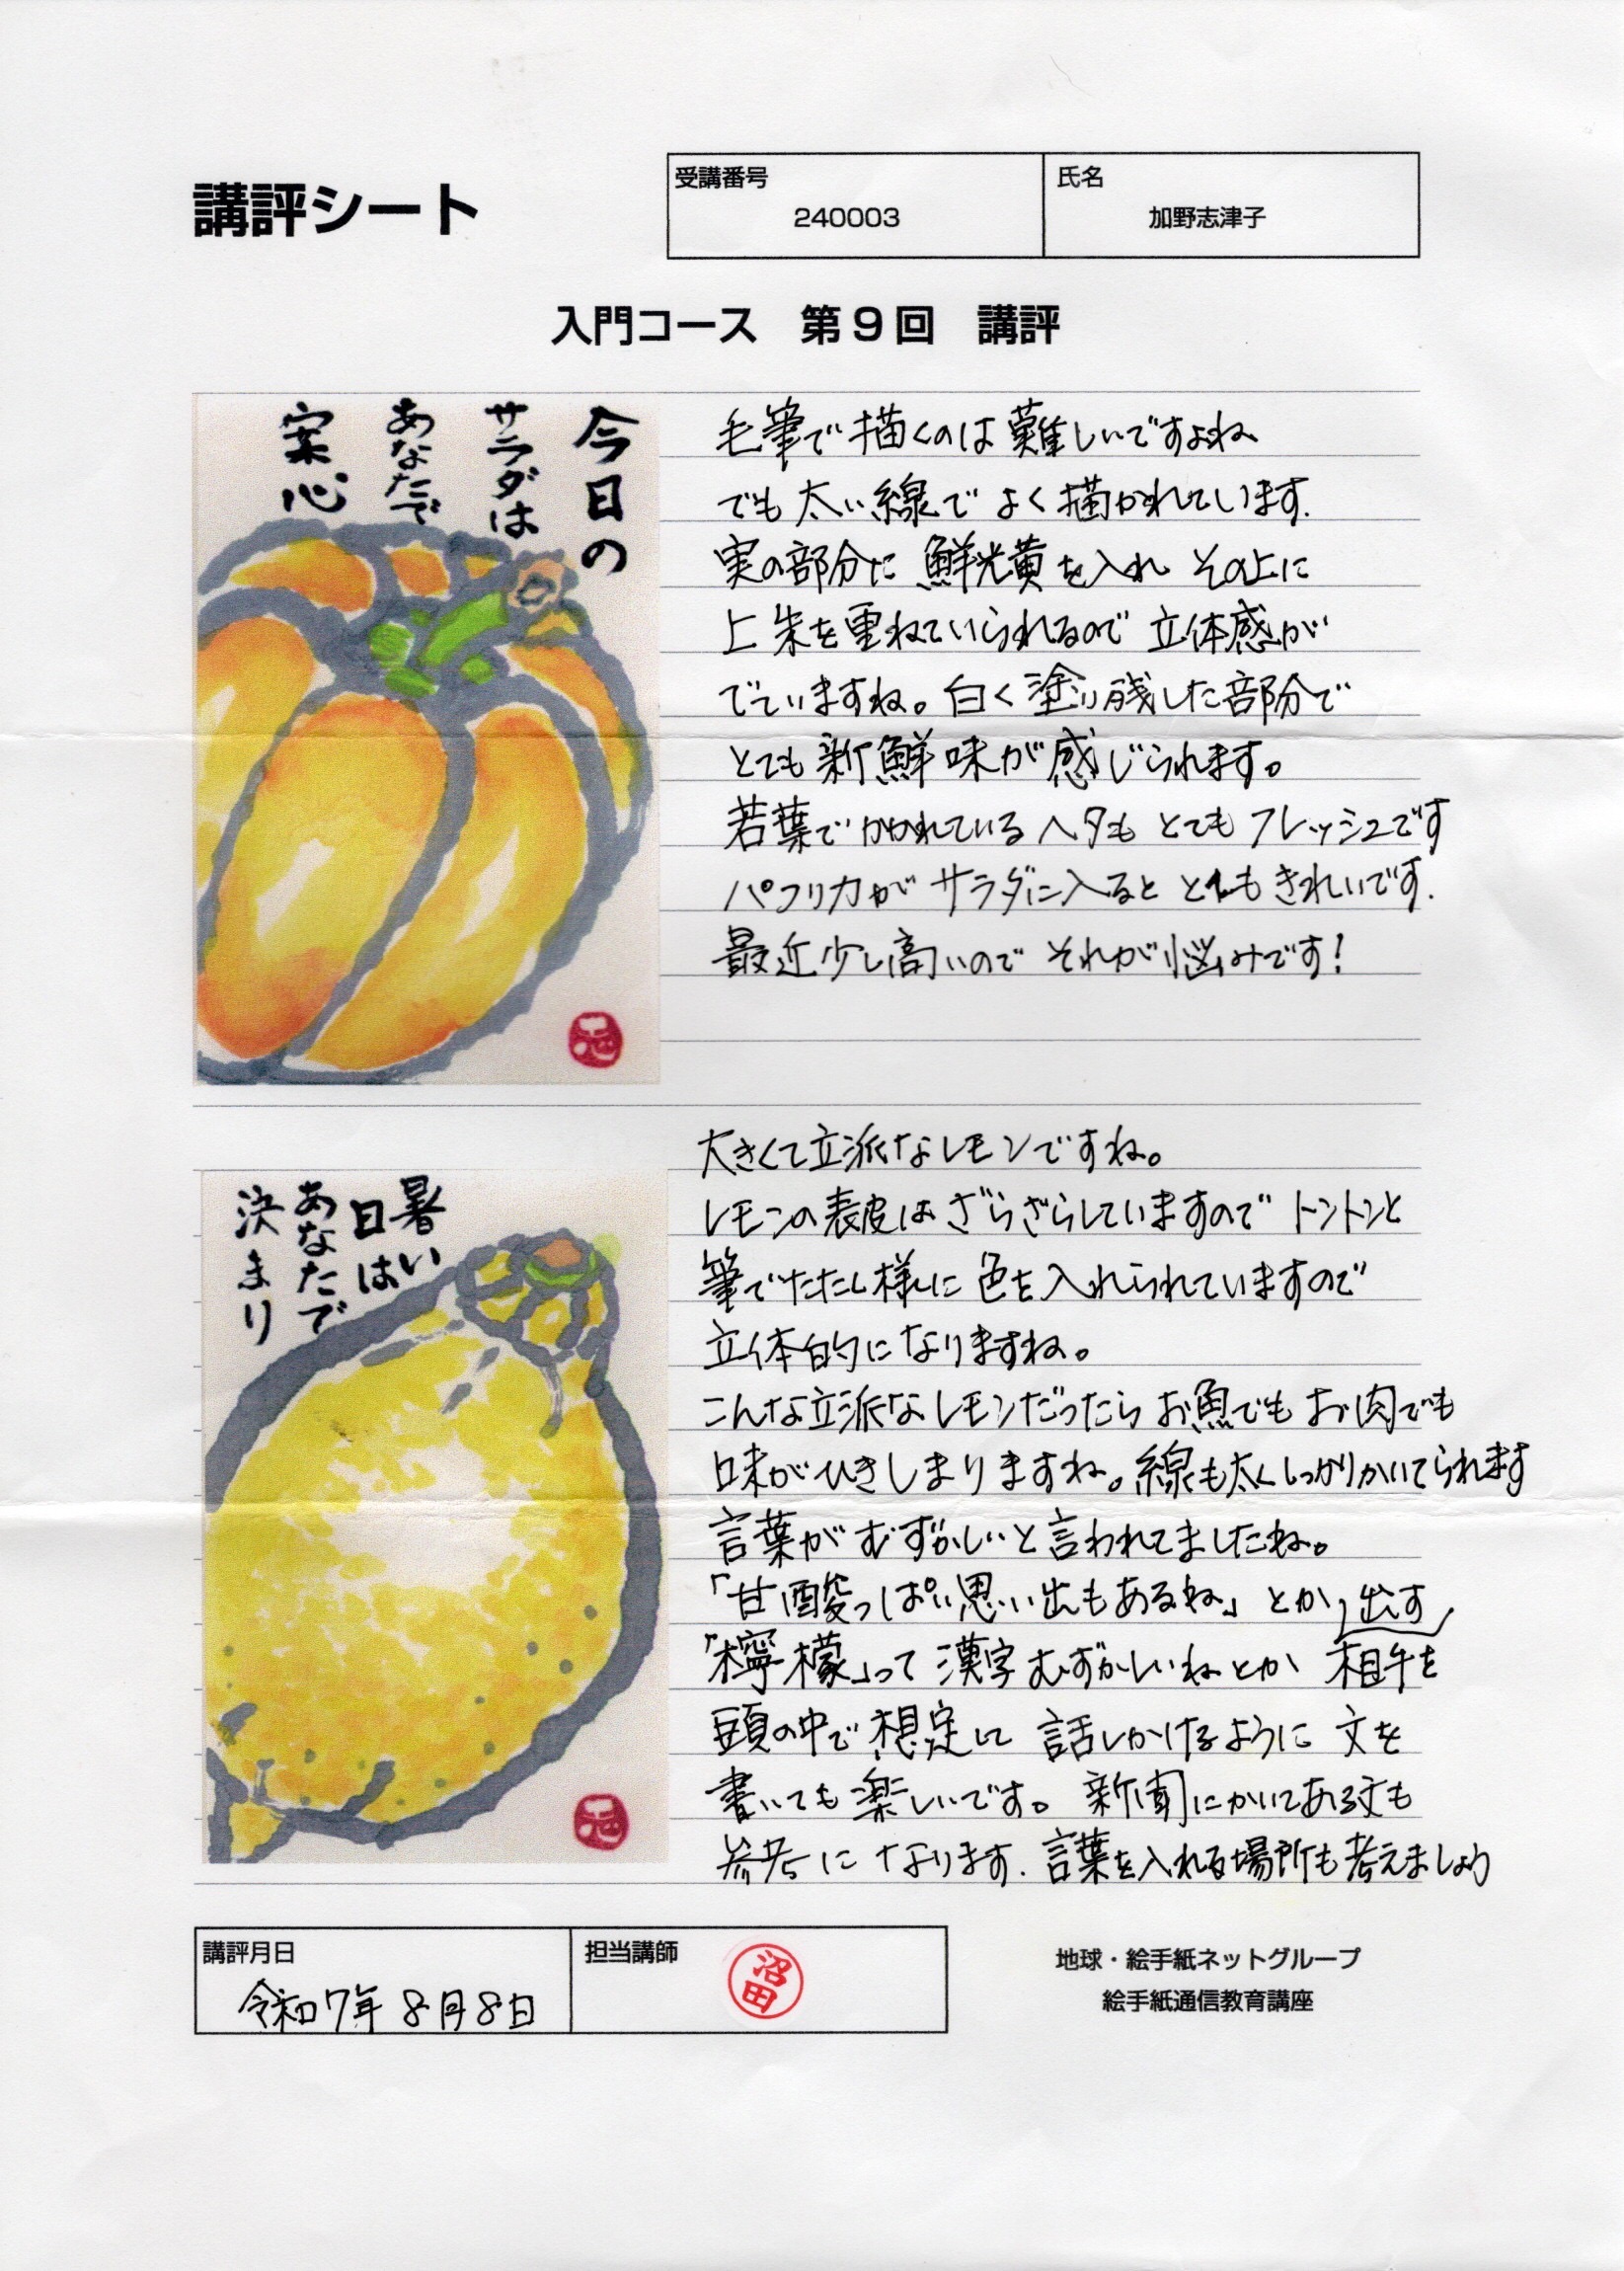 講評シート
受講番号
240003
氏名
加野志津子
入門コース 第9回 講評
今日の
サラダは
あなたで
安心
毛筆で描くのは難しいですよね
でも太い線でよく描かれています.
実の部分に鮮光黄を入れその上に
上朱を重ねていられるので立体感が
でていますね。白く塗り残した部分で
とても新鮮味が感じられます。
若葉でかかれているヘタもとてもフレッシュです
パプリカがサラダに入るととてもきれいです.
最近少し高いのでそれが悩みです!
大きくて立派なレモンですね。
レモンの表皮はざらざらしていますのでトントンと
筆でたたく様に色を入れられていますので
立体的になりますね。
こんな立派なレモンだったらお魚でもお肉でも
味がひきしまりますね。線も太くしっかりかいてられます
言葉がむずかしいと言われてましたね。
「甘酸っぱい思い出もあるね」とか 出す
「檸檬」って漢字むずかしいねとか 相手を
頭の中で想定して 話しかけるように 文を
書いても楽しいです。新聞にかいてある文も
参考になります. 言葉を入れる場所も考えましょう
暑い
日は
あなたで
決まり
講評月日
令和7年8月8日
担当講師
沼田
地球・絵手紙ネットグループ
絵手紙通信教育講座